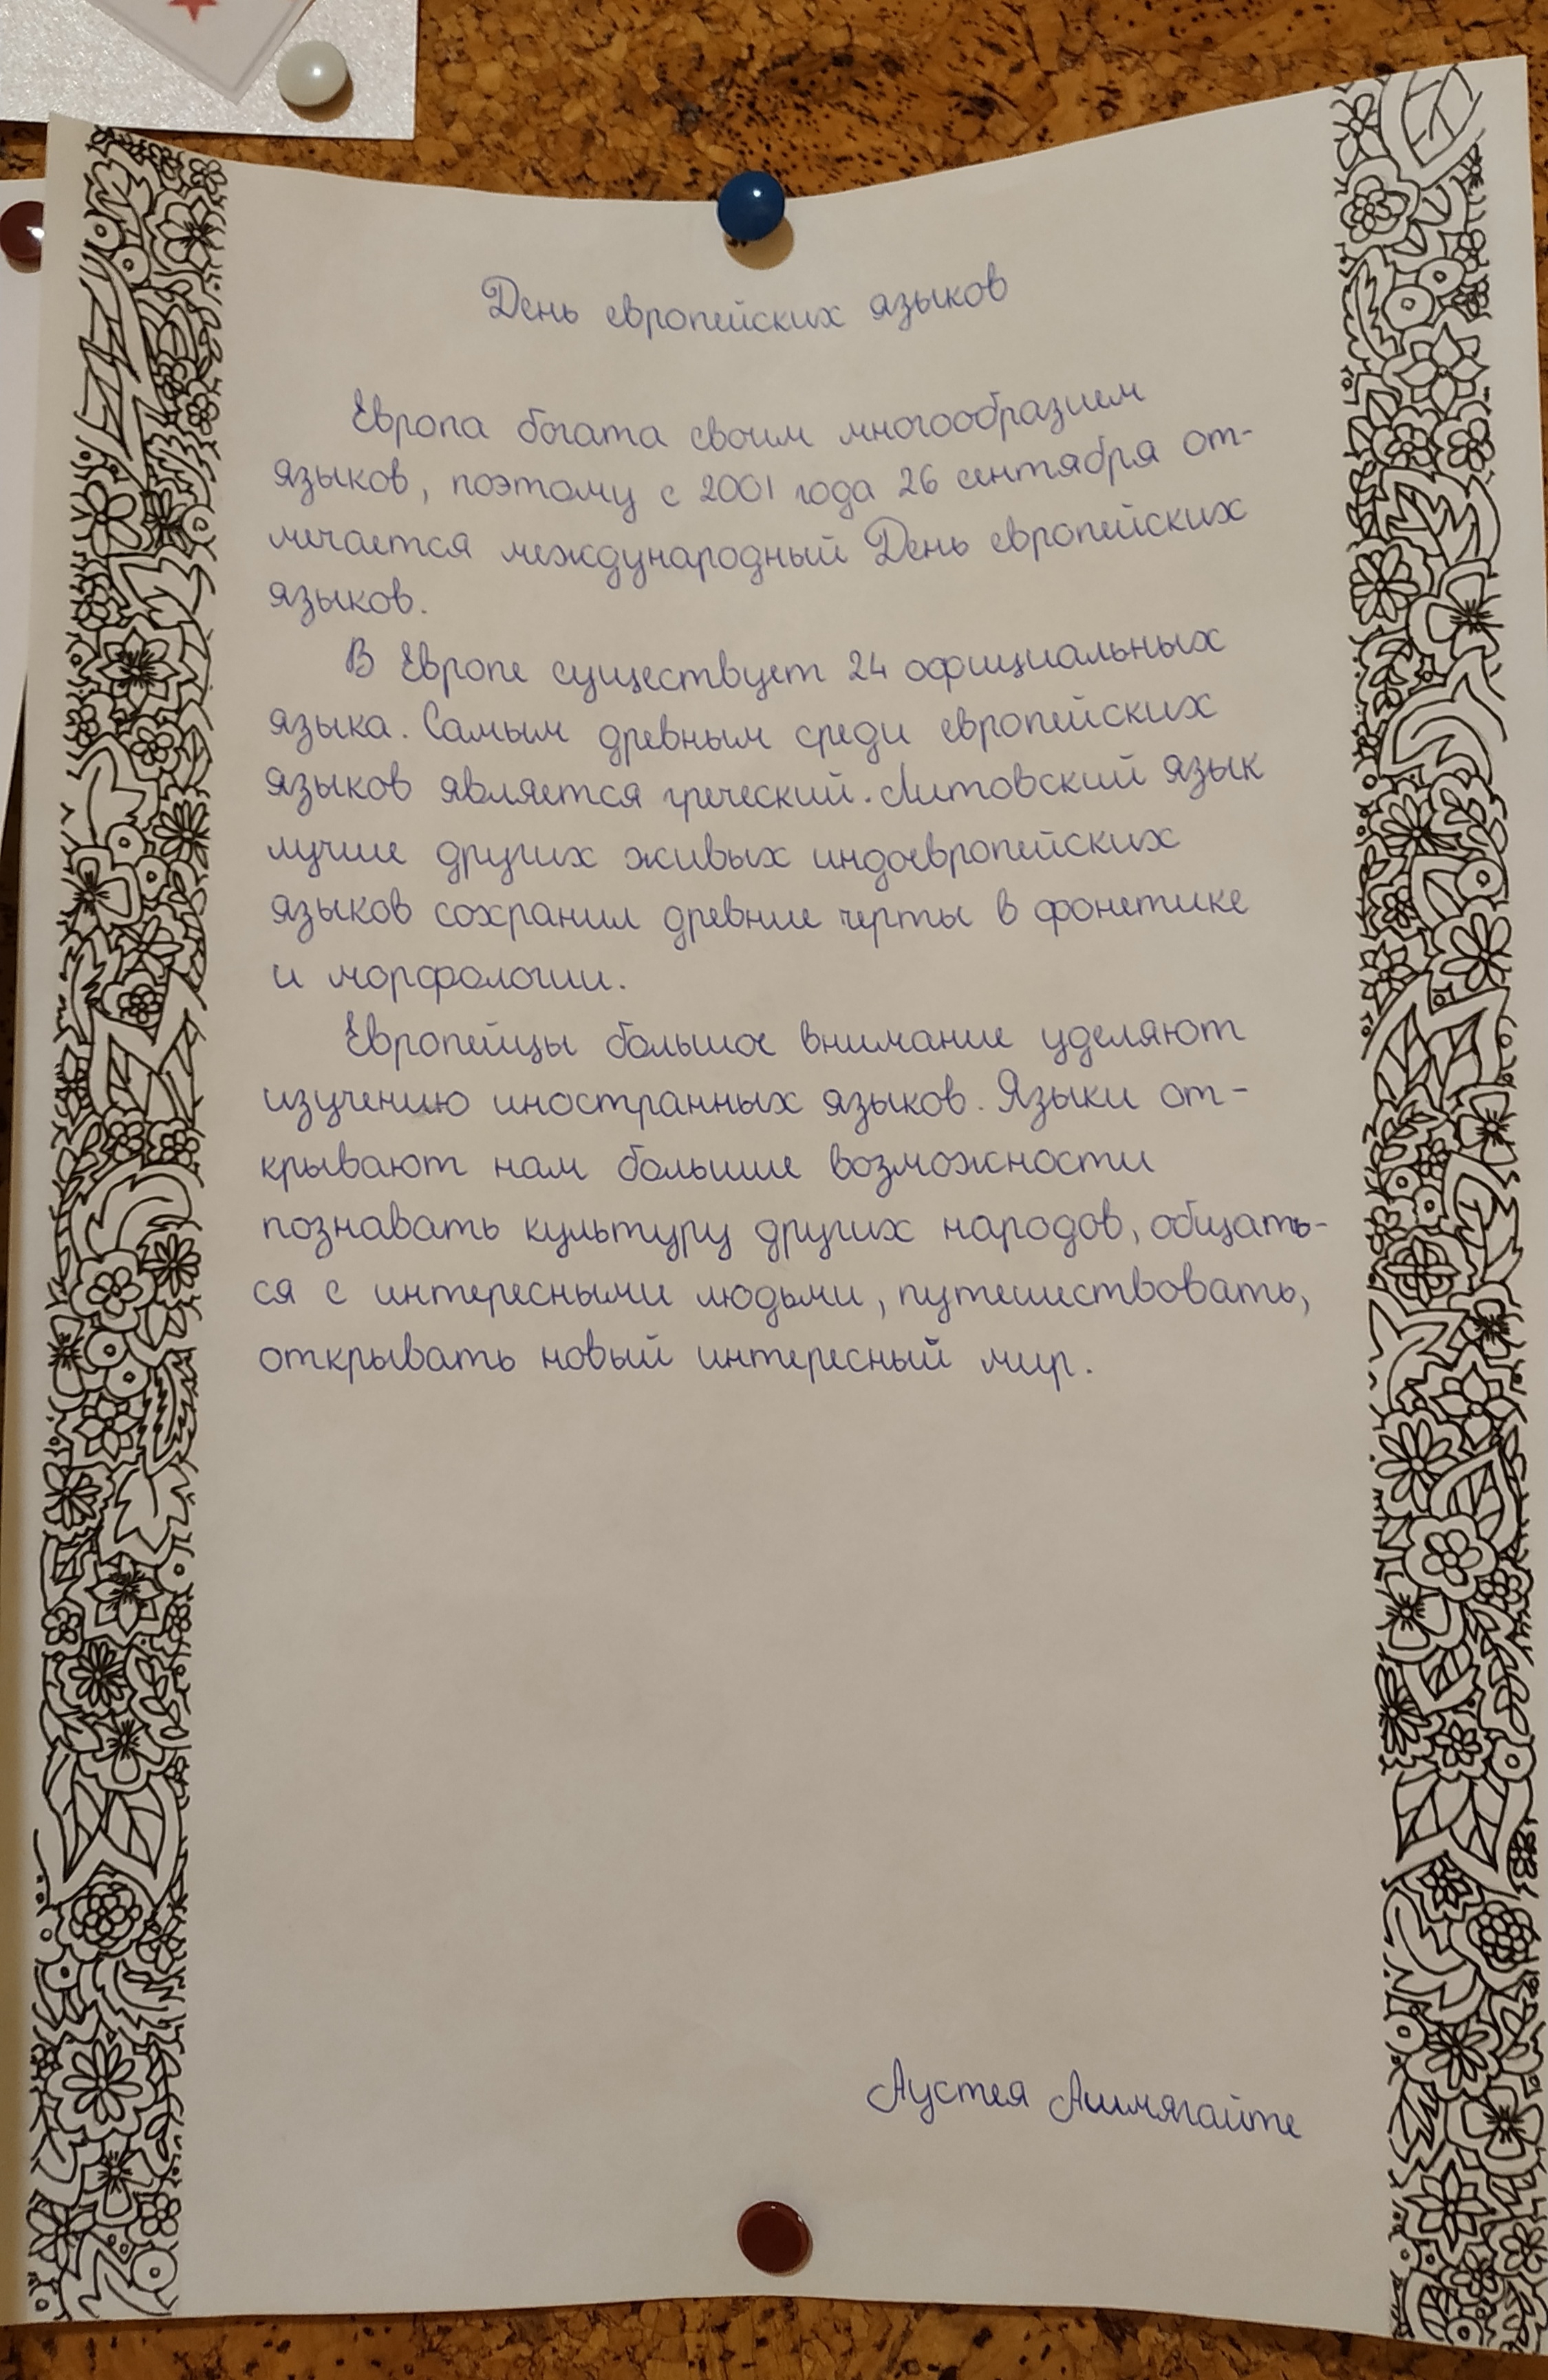 День европейских языков
Европа богата своим многообразием
языков, поэтому с 2001 года 26 сентября от-
мечается международный День европейских
языков.
В Европе существует 24 официальных
языка. Самым древным среди европейских
языков является греческий. Литовский язык
лучше других живых индоевропейских
языков сохранил древние черты в фонетике
и морфологии.
Европейцы большое внимание уделяют
изучению иностранных языков. Языки от-
крывают нам большие возможности
познавать культуру других народов, общать-
ся с интересными людьми, путешествовать,
открывать новый интересный мир.
Аустея Ашмягайте